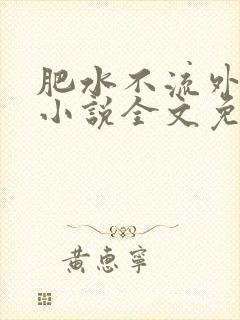 肥水不流外
小說全文免
黃惠寧